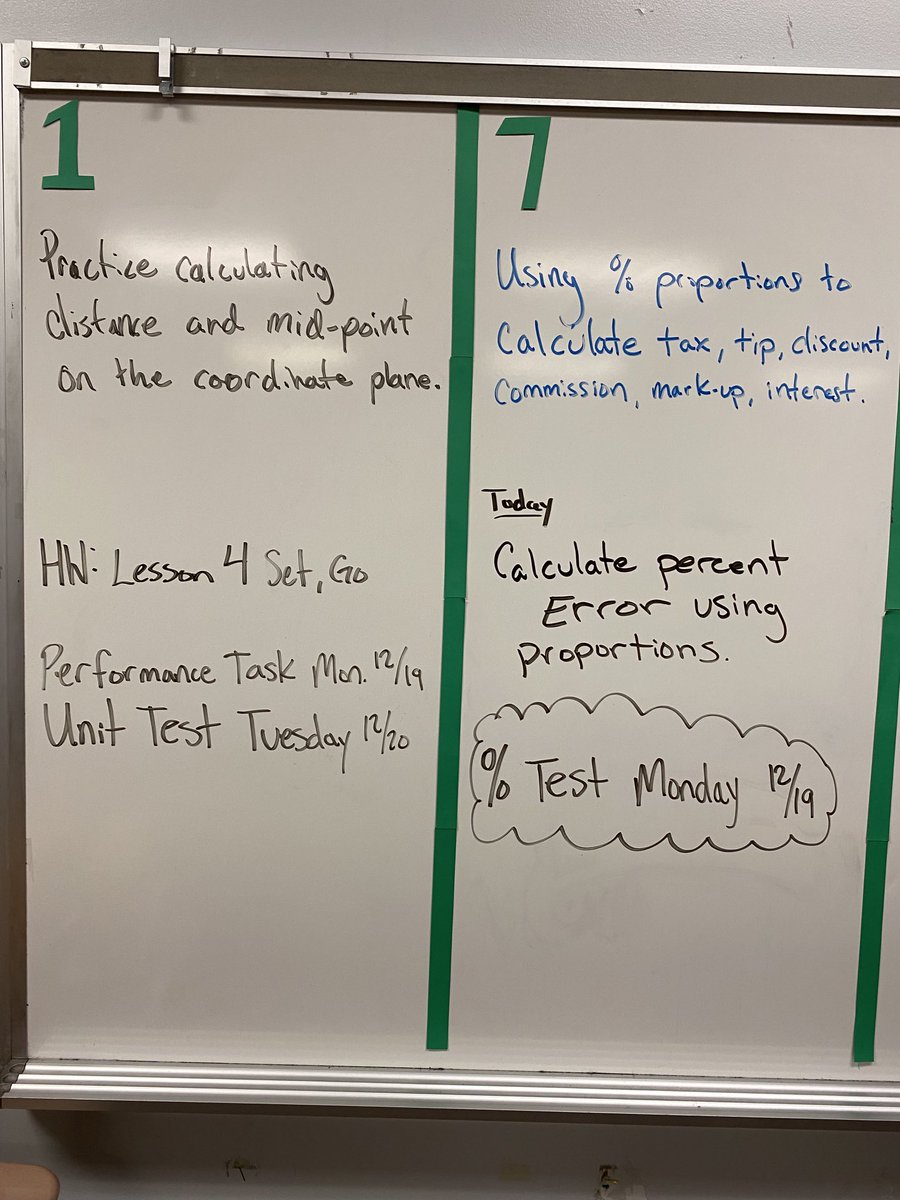 1
Practice calculating
distance and mid-point
on the coordinate plane.
HW: Lesson 4 Set, Go
Performance Task Mon. 12/19
Unit Test Tuesday 12/20
7
Using % proportions to
Calculate tax, tip, discount,
Commission, mark-up, interest.
Today
Calculate percent
Error using
proportions.
% Test Monday 12/19